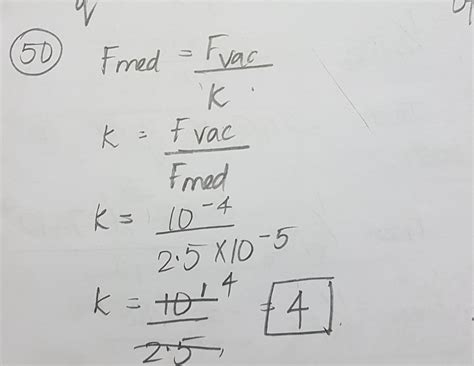 50 Fmed = Fvac / K
K = Fvac / Fmed
K = 10⁻⁴ / 2.5 × 10⁻⁵
K = 10¹ / 2.5 4 = 4